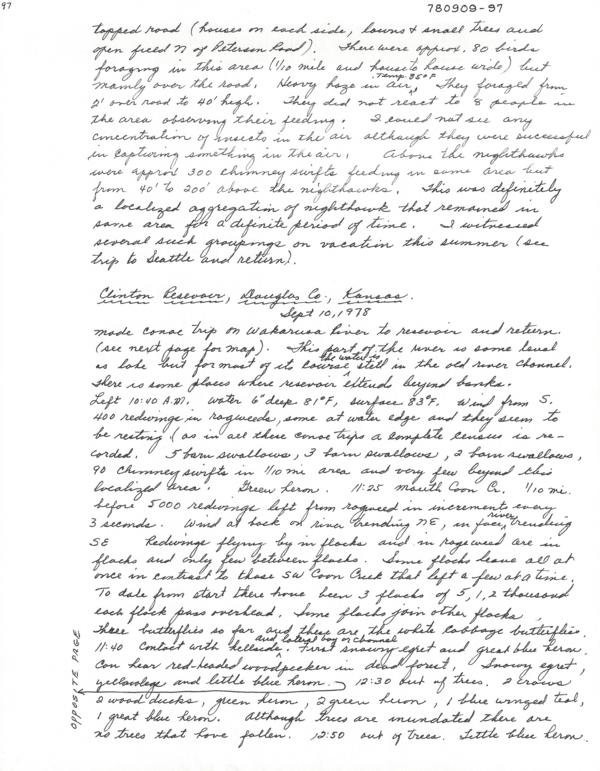 97
780909-97
topped road (houses on each side, lawns & small trees and
open field N of Peterson Road). There were approx. 80 birds
foraging in this area (1/10 mile and house to house wide) but
mainly over the road. Heavy haze in air, Temp. 85°F They foraged from
2' over road to 40' high. They did not react to 8 people in
the area observing their feeding. I could not see any
concentration of insects in the air although they were successful
in capturing something in the air. Above the nighthawks
were approx 300 chimney swifts feeding in same area but
from 40' to 200' above the nighthawks. This was definitely
a localized aggregation of nighthawk that remained in
same area for a definite period of time. I witnessed
several such groupings on vacation this summer (see
trip to Seattle and return).
Clinton Resevoir, Douglas Co., Kansas.
Sept 10, 1978
made canoe trip on Wakarusa River to resevoir and return.
(see next page for map). This part of the river is same level
as lake but for most of its course the water is still in the old river channel.
There is some places where resevoir extends beyond banks.
Left 10:40 A.M. water 6" deep 81°F, surface 83°F. Wind from S.
400 redwings in ragweeds, some at water edge and they seem to
be resting (as in all these canoe trips a complete census is re-
corded. 5 barn swallows, 3 barn swallows, 2 barn swallows,
90 chimney swifts in 1/10 mi area and very few beyond this
localized area. Green heron. 11:25 mouth Coon Cr. 1/10 mi.
before 5000 redwings left from ragweed in increments every
3 seconds. Wind at back on river trending NE, in face, river trending
SE Redwings flying by in flocks and in ragweed are in
flocks and only few between flocks. Some flocks leave all at
once in contrast to those SW Coon Creek that left a few at a time.
To date from start there have been 3 flocks of 5, 1, 2 thousand
each flock pass overhead. Some flocks join other flocks.
Three butterflies so far and these are the white cabbage butterflies.
11:40 Contact with hillside and lateral bay or channel. First snowy egret and great blue heron.
Can hear red-headed woodpecker in dead forest. Snowy egret,
yellowlegs and little blue heron. 12:30 out of trees. 2 crows
2 wood ducks, green heron, 2 green heron, 1 blue winged teal,
1 great blue heron. Although trees are inundated there are
no trees that have fallen. 12:50 out of trees. Little blue heron.
OPPOSITE PAGE